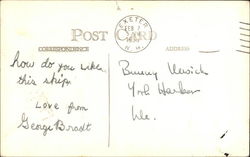 POST CARD
CORRESPONDENCE
ADDRESS
EXETER
FEB
N. H.
how do you like
this ship
Love from
George Brodt
Bunny
York Harbor
Me.